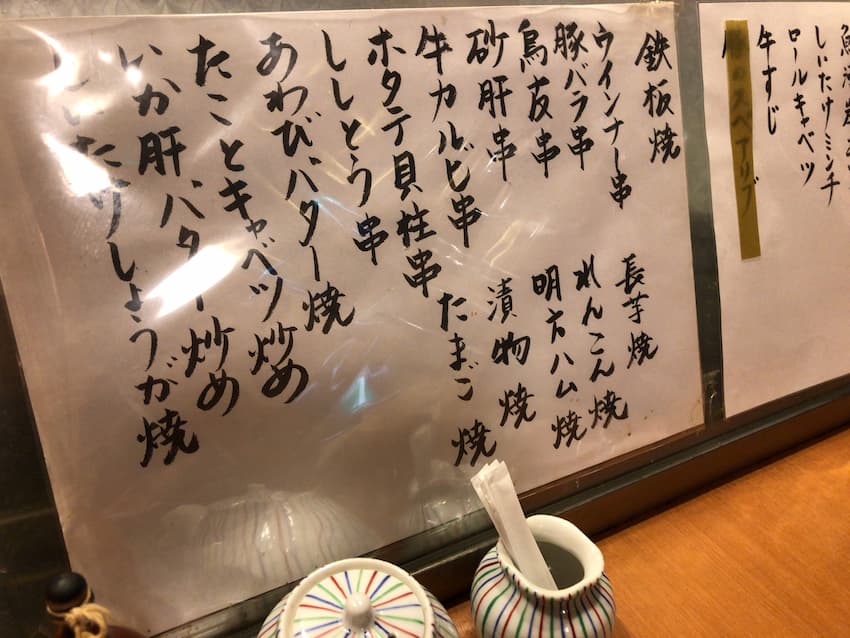 しいたけミンチ
ロールキャベツ
牛すじ
のスペアリブ
鉄板焼
ウインナー串
豚バラ串
鳥皮串
砂肝串
牛カルビ串
ホタテ貝柱串
ししとう串
長芋焼
れんこん焼
明方ハム焼
漬物焼
たまご焼
あわびバター焼
たことキャベツ炒め
いか肝バター炒め
しいたけしょうが焼